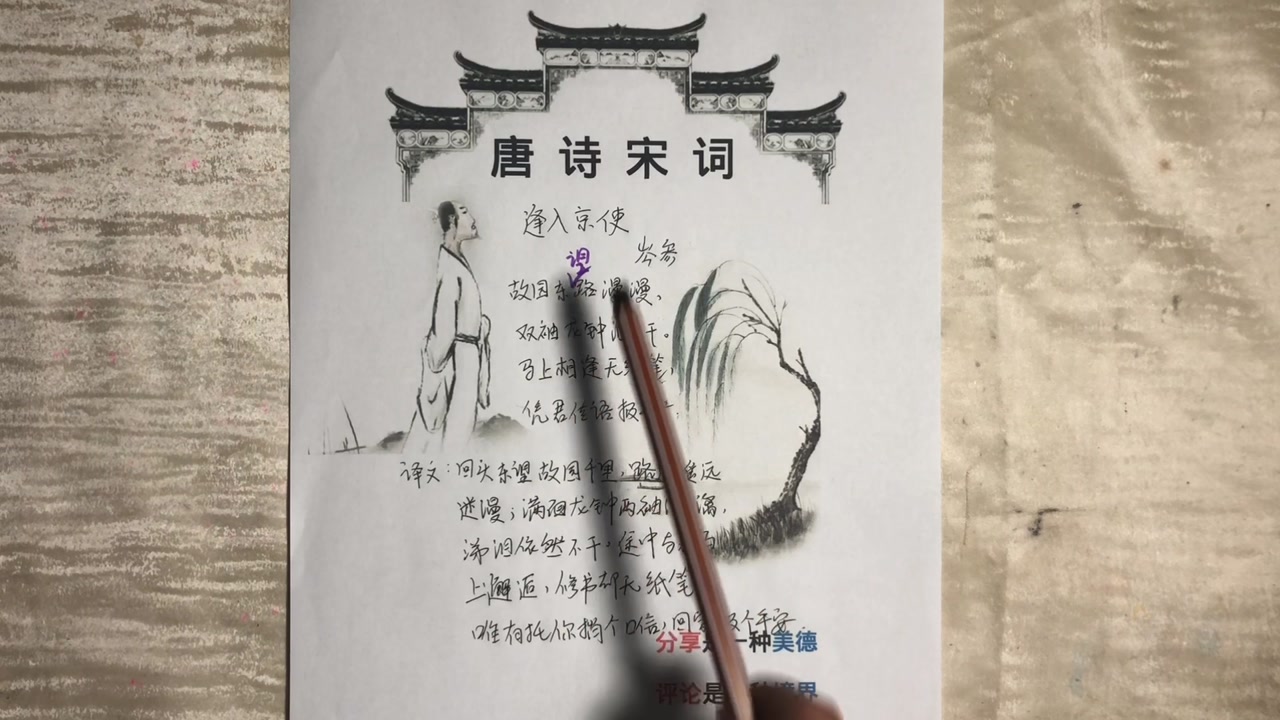 唐诗宋词
逢入京使
岑参
望
故园东路漫漫,
双袖龙钟 干。
马上相逢无纸笔,
凭君传语报
译文:回头东望故园千里,路 遥远
迷漫;满面龙钟两袖 漓,
涕泪依然不干。途中与
上邂逅,修书却无纸笔
唯有托你捎个口信,回家报个平安.
分享是一种美德
评论是 境界